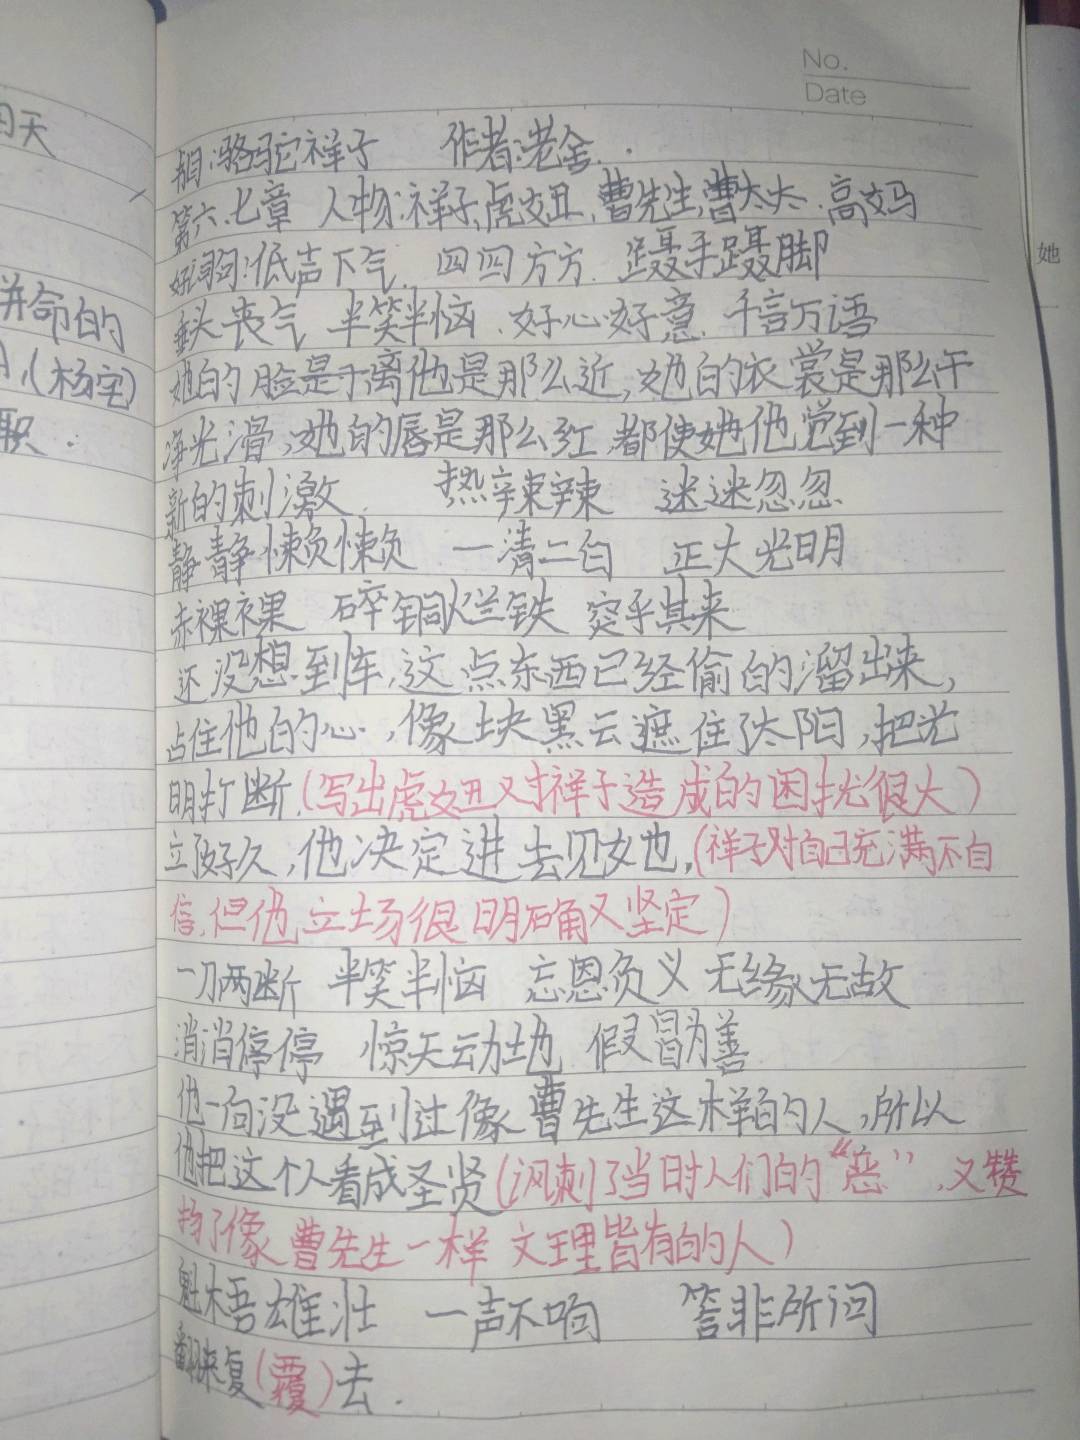 No.
Date
书目:骆驼祥子 作者:老舍.
第六.七章 人物:祥子,虎妞,曹先生,曹太太.高妈
好词句:低声下气. 四四方方. 蹑手蹑脚
垂头丧气 半笑半恼.好心好意.千言万语
她的脸是于离他是那么近,她的衣裳是那么干
净光滑,她的唇是那么红,都使她他觉到一种
新的刺激. 热辣辣 迷迷忽忽
静静懒懒 一清二白 正大光明
赤裸裸 碎铜烂铁 突乎其来
还没想到车,这点东西已经偷的溜出来,
占住他的心,像块黑云遮住了太阳,把光
明打断.(写出虎妞对祥子造成的困扰很大)
立了好久,他决定进去见她,(祥子对自己充满不自
信,但他立场很明确又坚定)
一刀两断 半笑半恼 忘恩负义 无缘无故
消消停停 惊天动地 假冒为善
他一向没遇到过像曹先生这样的人,所以
他把这个人看成圣贤(讽刺了当时人们的“恶”,又赞
扬了像曹先生一样文理皆有的人)
魁梧雄壮 一声不响 答非所问
翻来复(覆)去.
四天
拼命的
(杨宅)
职.
她